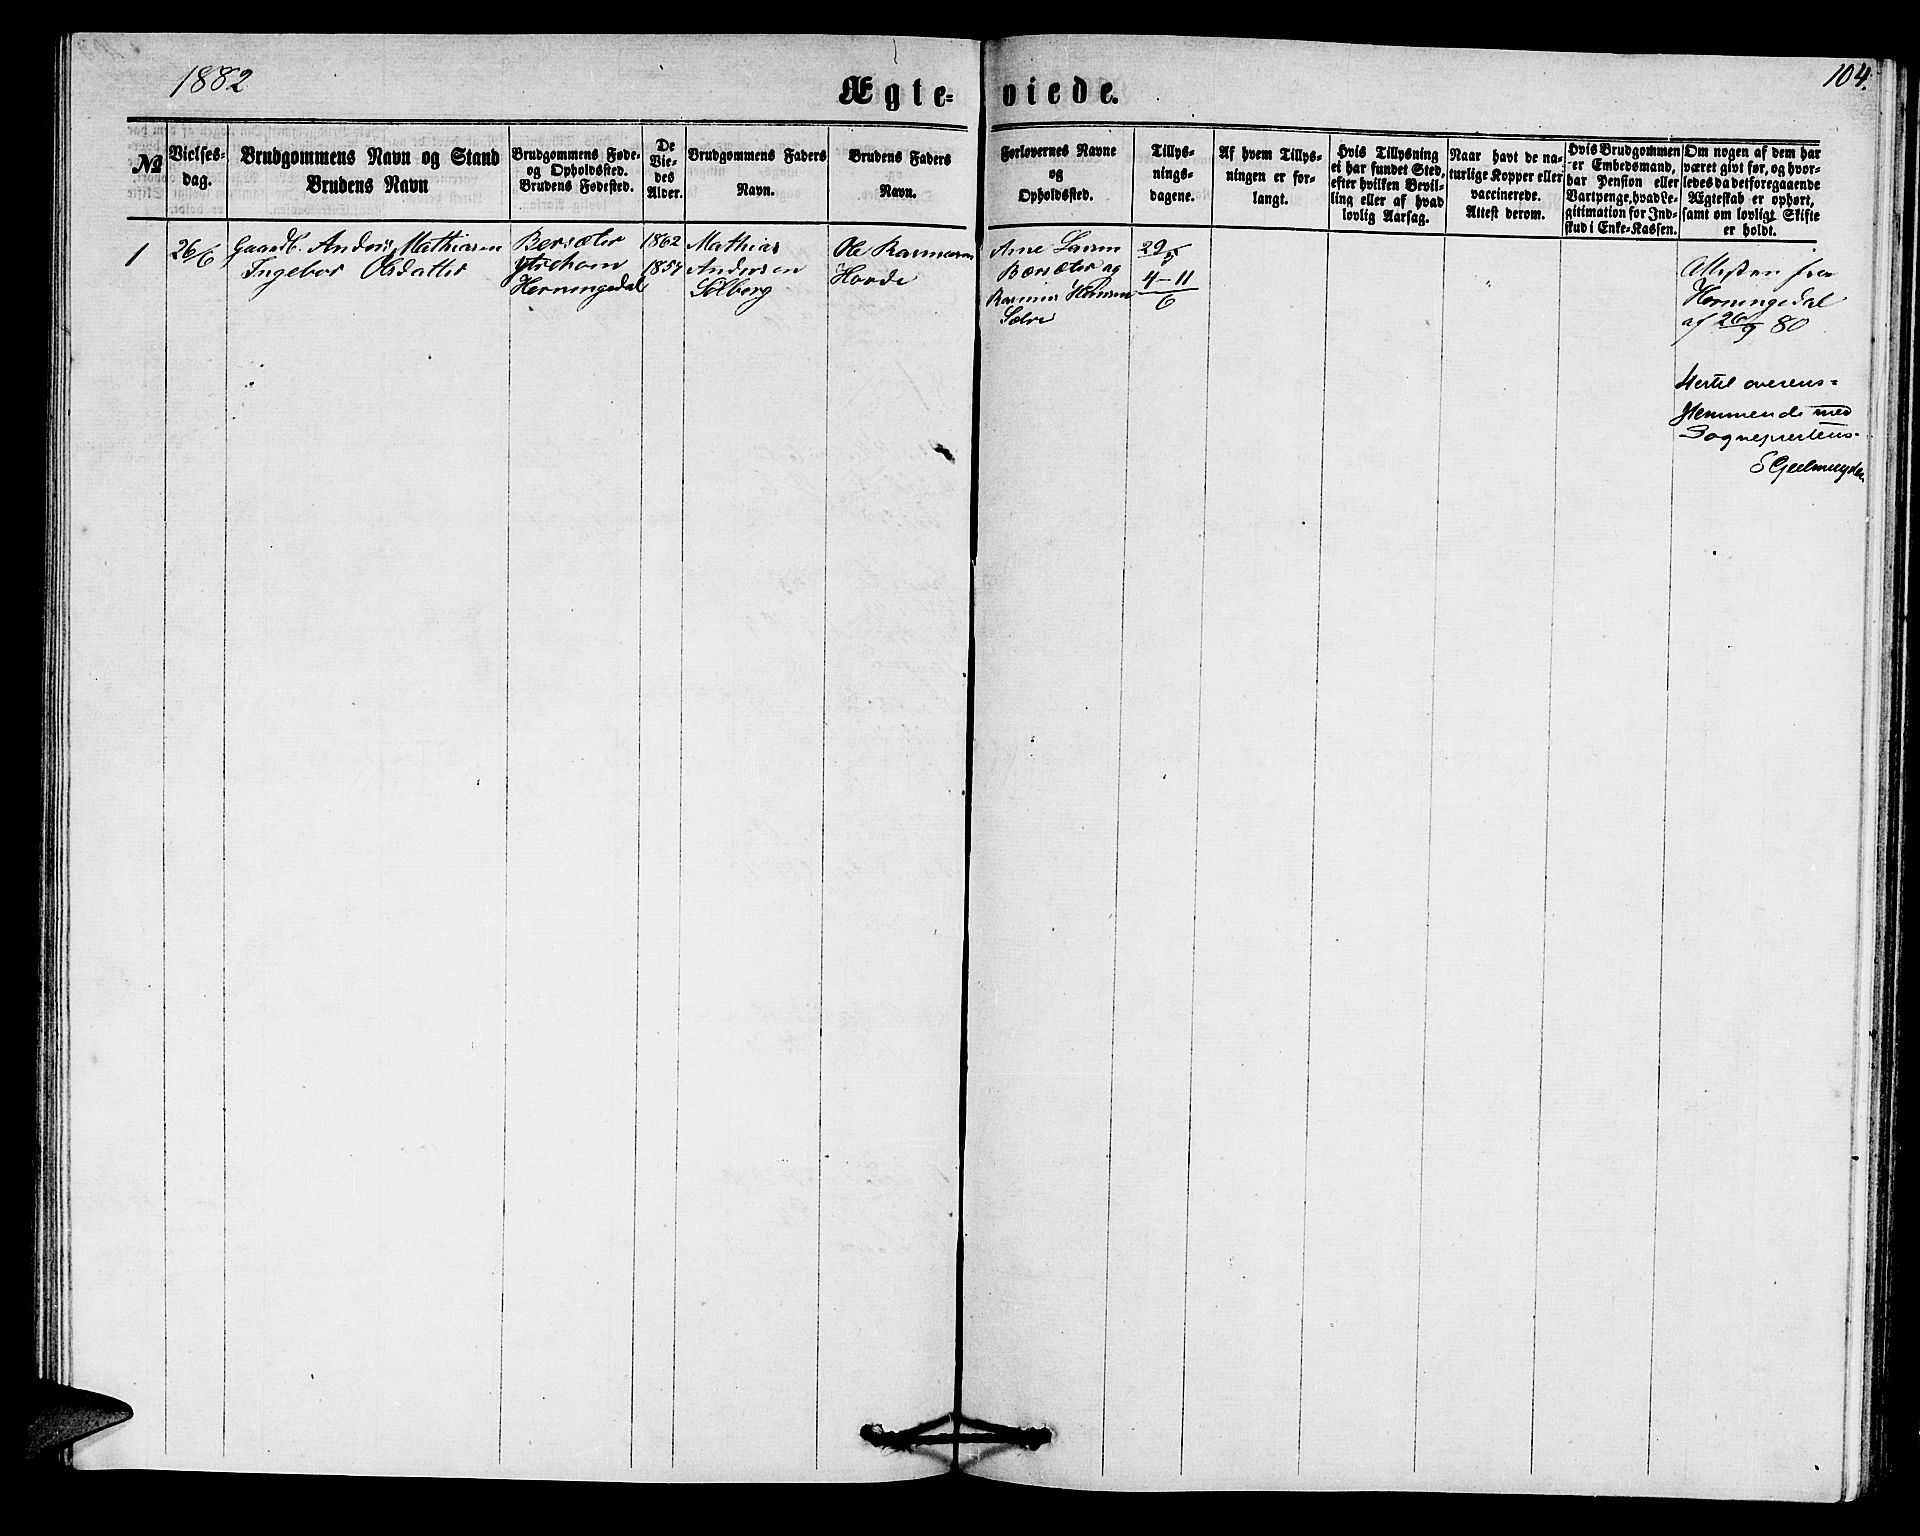 1882
104.
Ægte- viede.
No
Vielses-
dag.
Brudgommens Navn og Stand
Brudens Navn
Brudgommens Føde-
og Opholdssted.
Brudens Fødested.
De
Vie-
des
Alder.
Brudgommens Faders
Navn.
Brudens Faders
Navn.
Forlovernes Navne
og
Opholdssted.
Tillys-
nings-
dagene.
Af hvem Tillys-
ningen er for-
langt.
Hvis Tillysning
ei har fundet Sted,
efter hvilken Bevil-
ling eller af hvad
lovlig Aarsag.
Naar havt de na-
turlige Kopper eller
vaccinerede.
Attest derom.
Hvis Brudgommen
er Embedsmand,
har Pension eller
Vartpenge, hvad Le-
gitimation for Ind-
skud i Enke-Kassen.
Om nogen af dem har
været givt før, og hvor-
ledes da det foregaaende
Ægteskab er ophørt,
samt om lovligt Skifte
er holdt.
1
26/6
Gaardb. Anders Mathiasen
Ingebor Olsdatter
Bersæter
Horningedal
1862
1857
Mathias
Andersen
Solberg
Ole Rasmussen
Horde
Arne Larsen
Bersæter og
Rasmus Hansen
29/5
4-11
6
Attesten fra
Horningedal
af 26/9 80
Hertil overens=
stemmende med
Sogneprestens.
S Geelmuyden